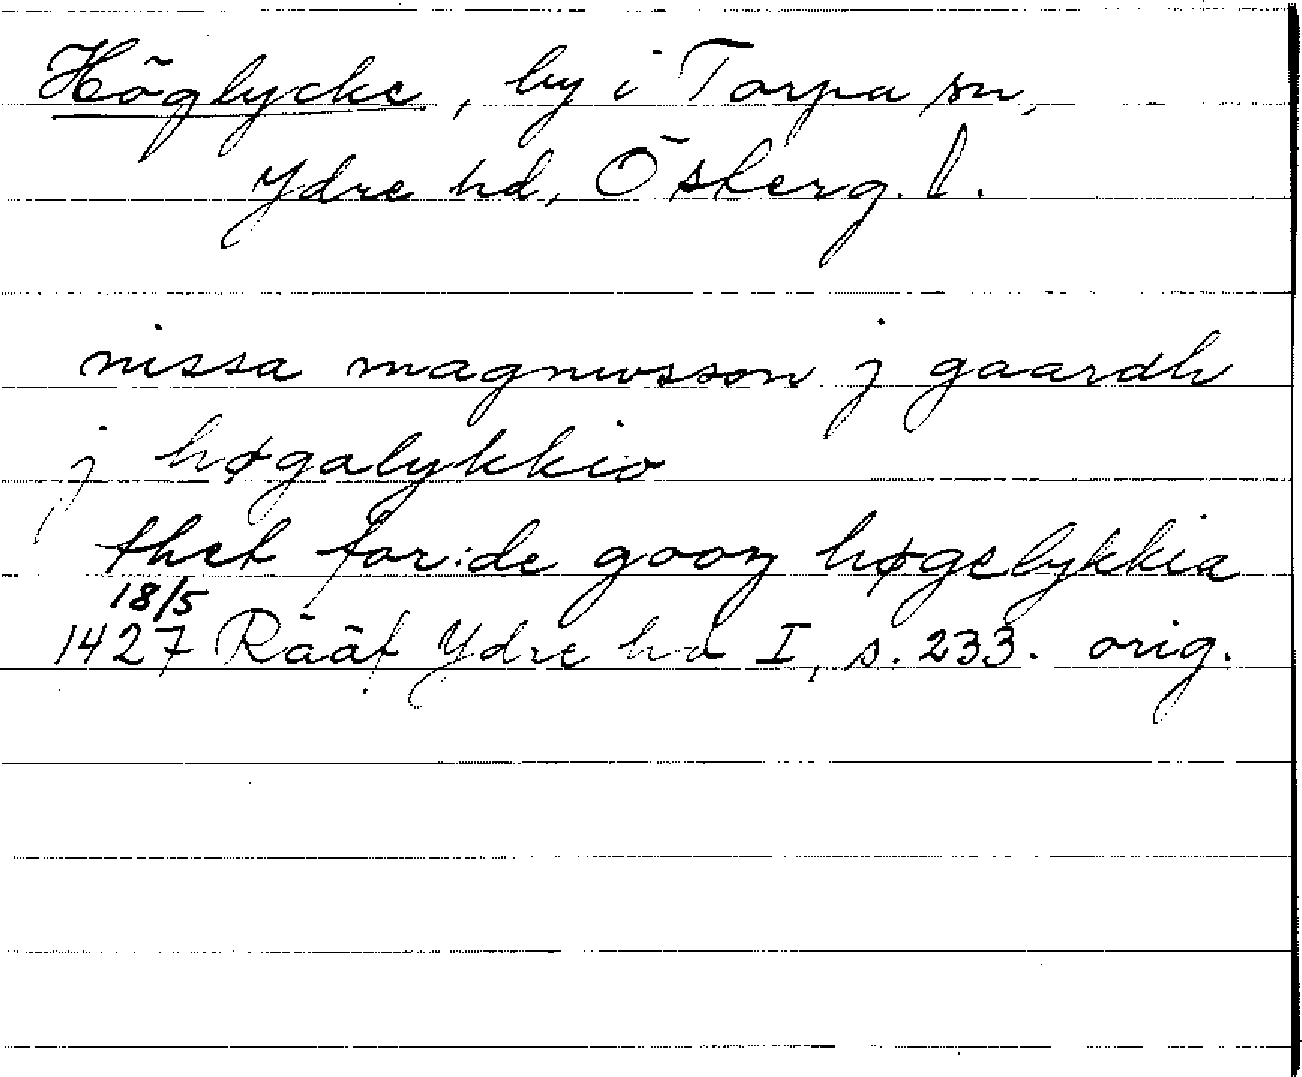 Höglycke, by i Torpa sn,
Ydre hd, Österg. l.
nissa magnusson j gaardh
j høgalykkio
thet for:de gooz høgelykkia
18/5
1427 Rääf Ydre hd I, s. 233. orig.